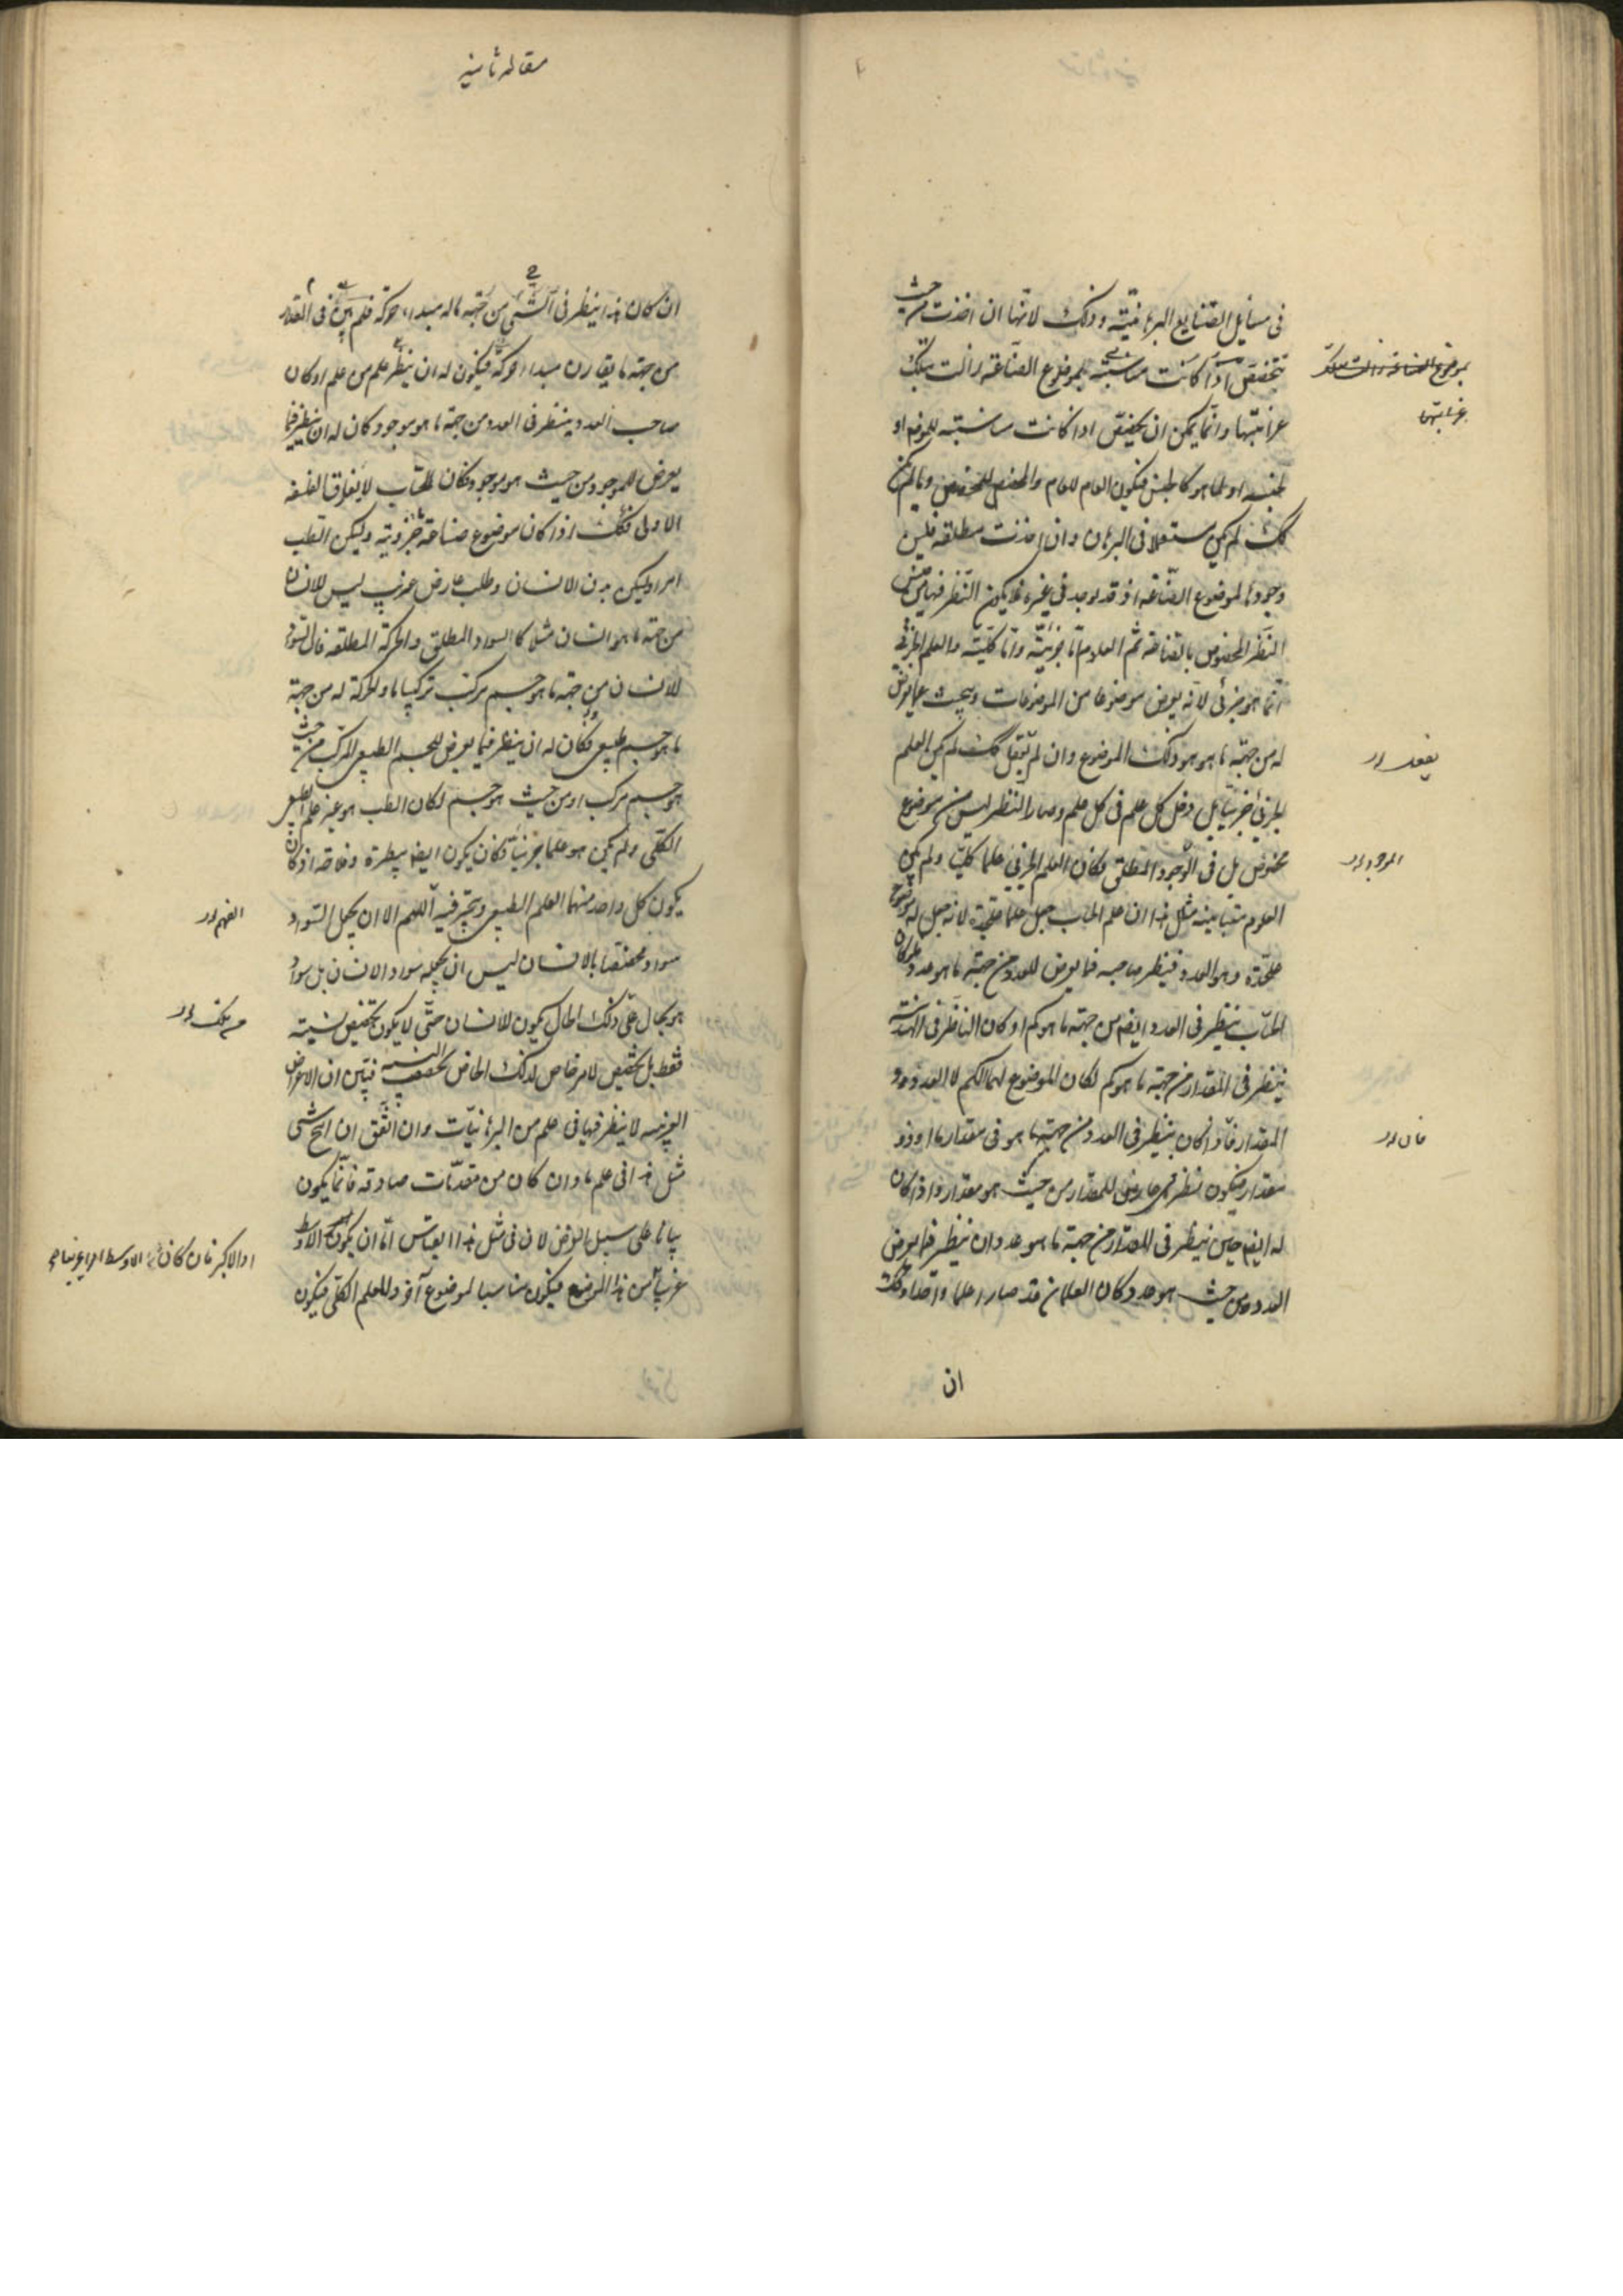 في مسايل الصنايع البرهانية وذلك لانها ان اخذت من حيث
تتخصص اذا كانت مناسبة لموضوع الصناعة زالت بتلك
غرابتها وانما يمكن ان تخصص اذا كانت مناسبة للموضوع او
لجنسه او لما هو كالجنس فيكون العام للعام والمخصص للمخصص وما لم يكن
كك لم يكن مستعملا في البرهان وان اخذت مطلقه فليس
وجودها لموضوع الصناعة اذ قد يوجد في غيره فلا يكون النظر فيها من جنس
النظر المخصوص بالصناعة ثم العلوم اما جزئية واما كلية والعلم الجزئي
انما هو جزئي لانه يفرض موضوعا من الموضوعات ويبحث عما يعرض
له من جهة ما هو هو ذلك الموضوع وان لم يفعل كك لم يكن العلم
الجزئي جزئيا بل دخل كل علم في كل علم وصار النظر ليس في موضوع
مخصوص بل في الوجود المطلق فكان العلم الجزئي علما كليا ولم يكن
العلوم متباينة مثل هذا ان علم الحساب جعل علما على حدة لانه جعل له موضوع
على حدة وهو العدد فينظر صاحبه فيما يعرض للعدد من جهة ما هو عدد فلو كان
الحاسب ينظر في العدد ايضا من جهة ما هو كم او كان الناظر في الهندسة
ينظر في المقدار من جهة ما هو كم لكان الموضوع لهما الكم لا العدد ولا
المقدار فاذا كان ينظر في العدد من جهة ما هو في مقدار ما او ذو
مقدار فيكون نظر في عارض للمقدار من حيث هو مقدار واذا كان
له ايضا حين ينظر في المقدار من جهة ما هو عدد ان ينظر فيما يعرض
العدد من حيث هو عدد وكان العلمان قد صارا علما واحدا وكك
ان
لموضوع الصناعة زالت بتلك
غرابتها
يفعل
الموجود
فان
مقاله ثانيه
ان كان هذا ينظر في الشي من جهة ما له مبداء حركة فلم في المقدار
من جهة ما يقارن مبداء حركة فيكون له ان ينظر علم من علم او كان
صاحب العدد ينظر في العدد من جهة ما هو موجود كان له ان ينظر فيما
يعرض للموجود من حيث هو موجود فكان الحساب لا يفارق الفلسفه
الاولى فكك اذا كان موضوع صناعة جزوية وليكن الطب
امرا وليكن بدن الانسان وطلب عارض غريب ليس للانسان
من جهة ما هو انسان مثلا كالسواد المطلق والحركة المطلقه فان السواد
للانسان من جهة ما هو جسم مركب تركيبا ما والحركة له من جهة
ما هو جسم طبيعي فكان له ان ينظر فيما يعرض للجسم الطبيعي المركب من حيث
هو جسم مركب او من حيث هو جسم لكان الطب هو عينه علم الطبيعي
الكلي ولم يكن هو علما جزئيا وكان يكون ايضا بيطرة وفلاحة اذ كان
يكون كل واحد منهما العلم الطبيعي ويتحير فيه اللهم الا ان يجعل السواد
سوادا مختصا بالانسان ليس ان يجعله سواد الانسان بل سواد
هو بحال على ذلك الحال يكون للانسان حتى لا يكون تخصيص نسبته
فقط بل تخصيص لامر خاص لذلك الخاص تخصيصه النسبه فتبين ان الاعراض
الغريبه لا ينظر فيها في علم من البرهانيات وان اتفق ان انتج شي
مثل هذا في علم ما وان كان من مقدمات صادقة فانما يكون
بيانا على سبيل العرض لان في مثل هذا القياس اما ان يكون الاوسط
غريبا من هذا الموضوع فيكون مناسبا لموضوع آخر وللعلم الكلي فيكون
اللهم
من تلك
او الاكبر فان كان الاوسط امرا غريبا من